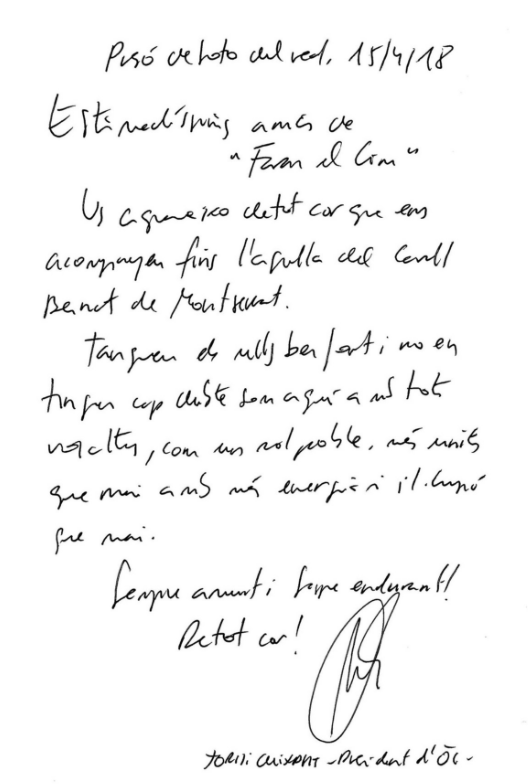 Presó de Soto del real, 15/4/18
Estimadíssims amics de
"Farem el Cim"
Us agraeixo de tot cor que ens
acompanyeu fins l'agulla del Cavall
Bernat de Montserrat.
Tanqueu els ulls ben fort i no en
tingueu cap dubte som aquí amb tots
vosaltres, com un sol poble, més units
que mai amb més energia i il·lusió
que mai.
Sempre amunt i sempre endavant!
De tot cor!
JORDI CUIXART - President d'ÒC -